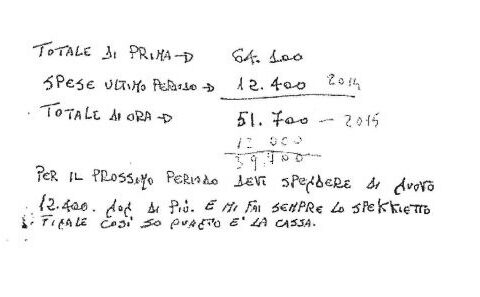 TOTALE DI PRIMA → 64.100
SPESE ULTIMO PERIODO → 12.400 2014
TOTALE DI ORA → 51.700 - 2015
12 000
39.700
PER IL PROSSIMO PERIODO DEVI SPENDERE DI NUOVO
12.400. NON DI PIÙ. E MI FAI SEMPRE LO SPEKKIETTO
FINALE COSÌ SO QUANTO E' LA CASSA.